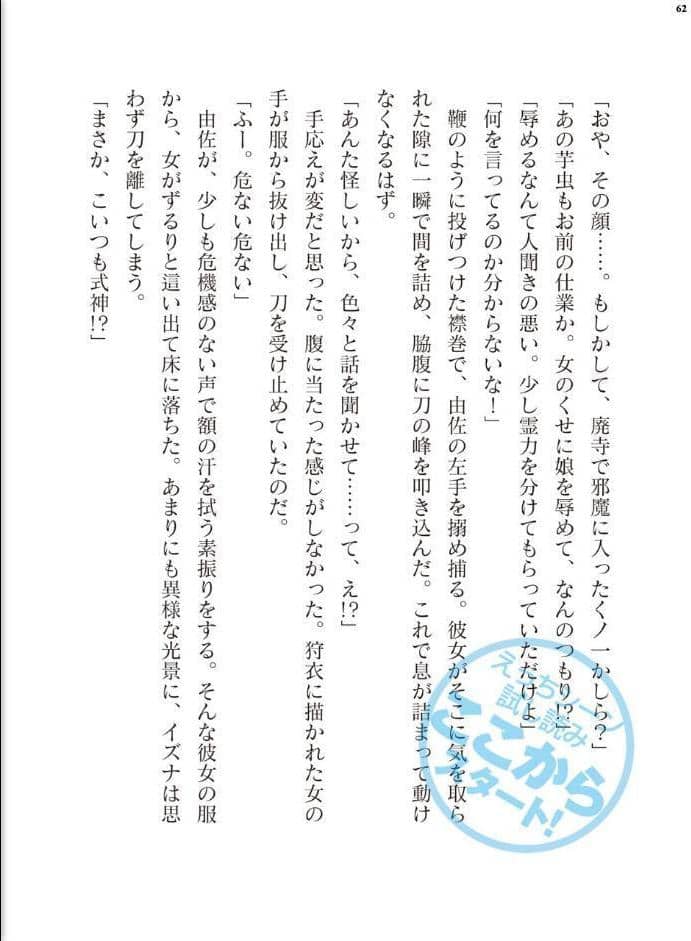 62
「おや、その顔……。もしかして、廃寺で邪魔に入ったくノ一かしら？」
「あの芋虫もお前の仕業か。女のくせに娘を辱めて、なんのつもり!?」
「辱めるなんて人聞きの悪い。少し霊力を分けてもらっていただけよ」
「何を言ってるのか分からないな！」
鞭のように投げつけた襟巻で、由佐の左手を搦め捕る。彼女がそこに気を取ら
れた隙に一瞬で間を詰め、脇腹に刀の峰を叩き込んだ。これで息が詰まって動け
なくなるはず。
「あんた怪しいから、色々と話を聞かせて……って、え!?」
手応えが変だと思った。腹に当たった感じがしなかった。狩衣に描かれた女の
手が服から抜け出し、刀を受け止めていたのだ。
「ふー。危ない危ない」
由佐が、少しも危機感のない声で額の汗を拭う素振りをする。そんな彼女の服
から、女がずるりと這い出て床に落ちた。あまりにも異様な光景に、イズナは思
わず刀を離してしまう。
「まさか、こいつも式神!?」
えっちシーン
試し読み
ここから
スタート!